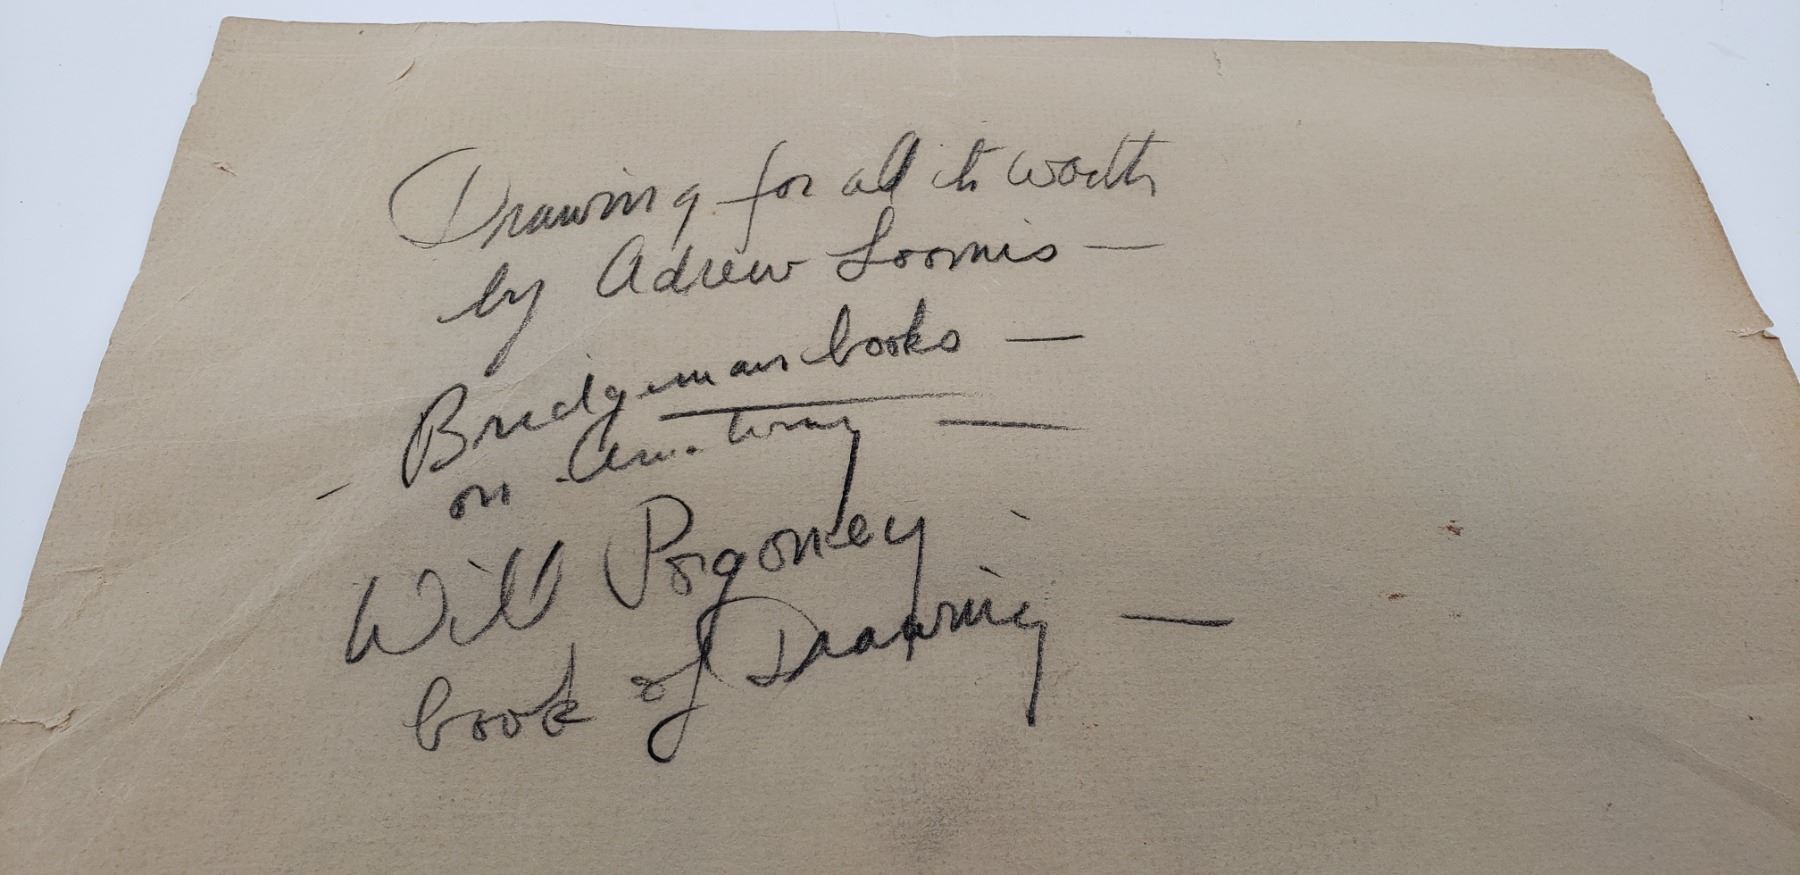 Drawing for all its worth
by Adrew Loomis —
Bridgeman books —
- on Anatomy —
Will Pogoney
book of Drawing —